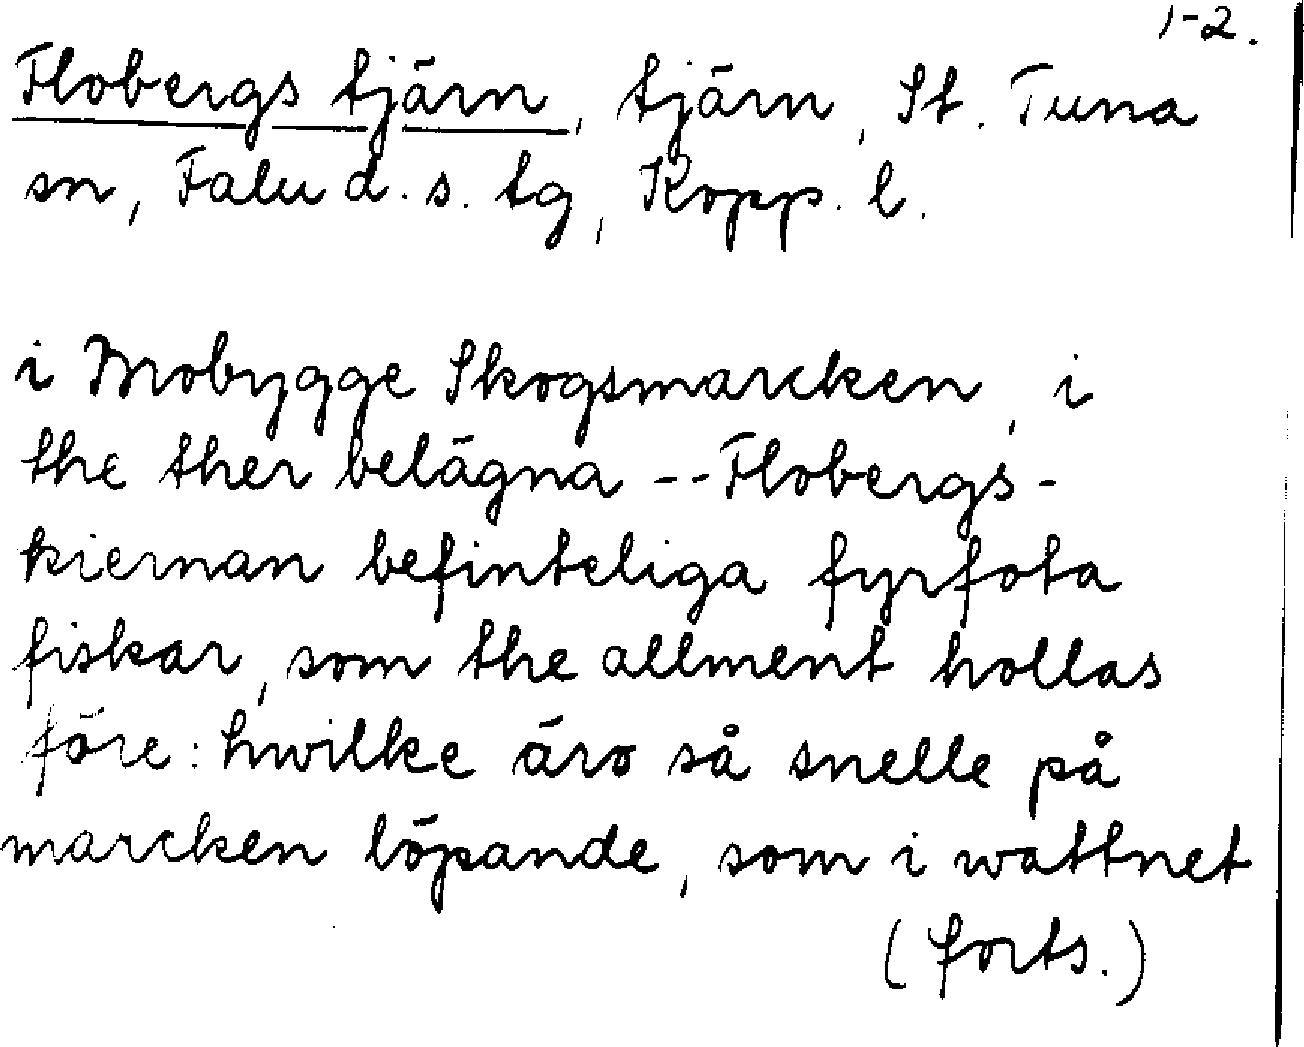 1-2.
Flobergs tjärn, tjärn, St. Tuna
sn, Falu d. s. tg, Kopp. l.
i Mobygge Skogsmarcken, i
the ther belägna -- Flobergs-
kiernan befinteliga fyrfota
fiskar, som the allment hollas
före: hwilke äro så snelle på
marcken löpande, som i wattnet
(forts.)